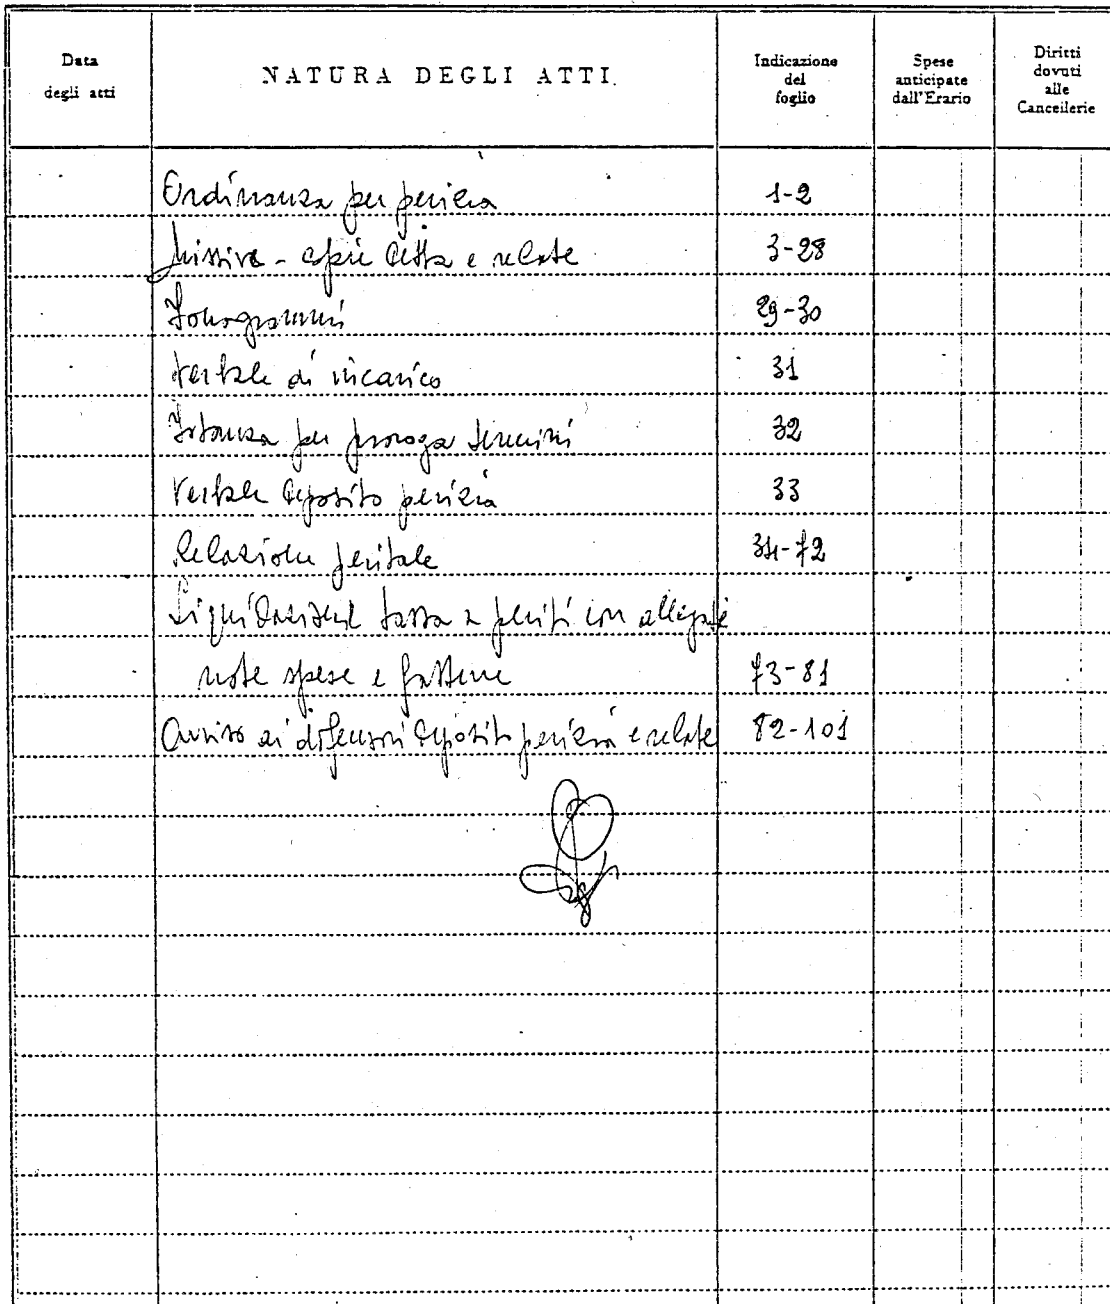 Data degli atti
NATURA DEGLI ATTI
Indicazione del foglio
Spese anticipate dall'Erario
Diritti dovuti alle Cancellerie
Ordinanza per perizia 1-2
Missive - copie detta e relate 3-28
Fonogrammi 29-30
Verbale di incarico 31
Istanza per proroga termini 32
Verbale deposito perizia 33
Relazione peritale 34-72
Liquidazione tassa a periti con allegate
note spese e fatture 73-81
Avviso ai difensori deposito perizia e relate 82-101